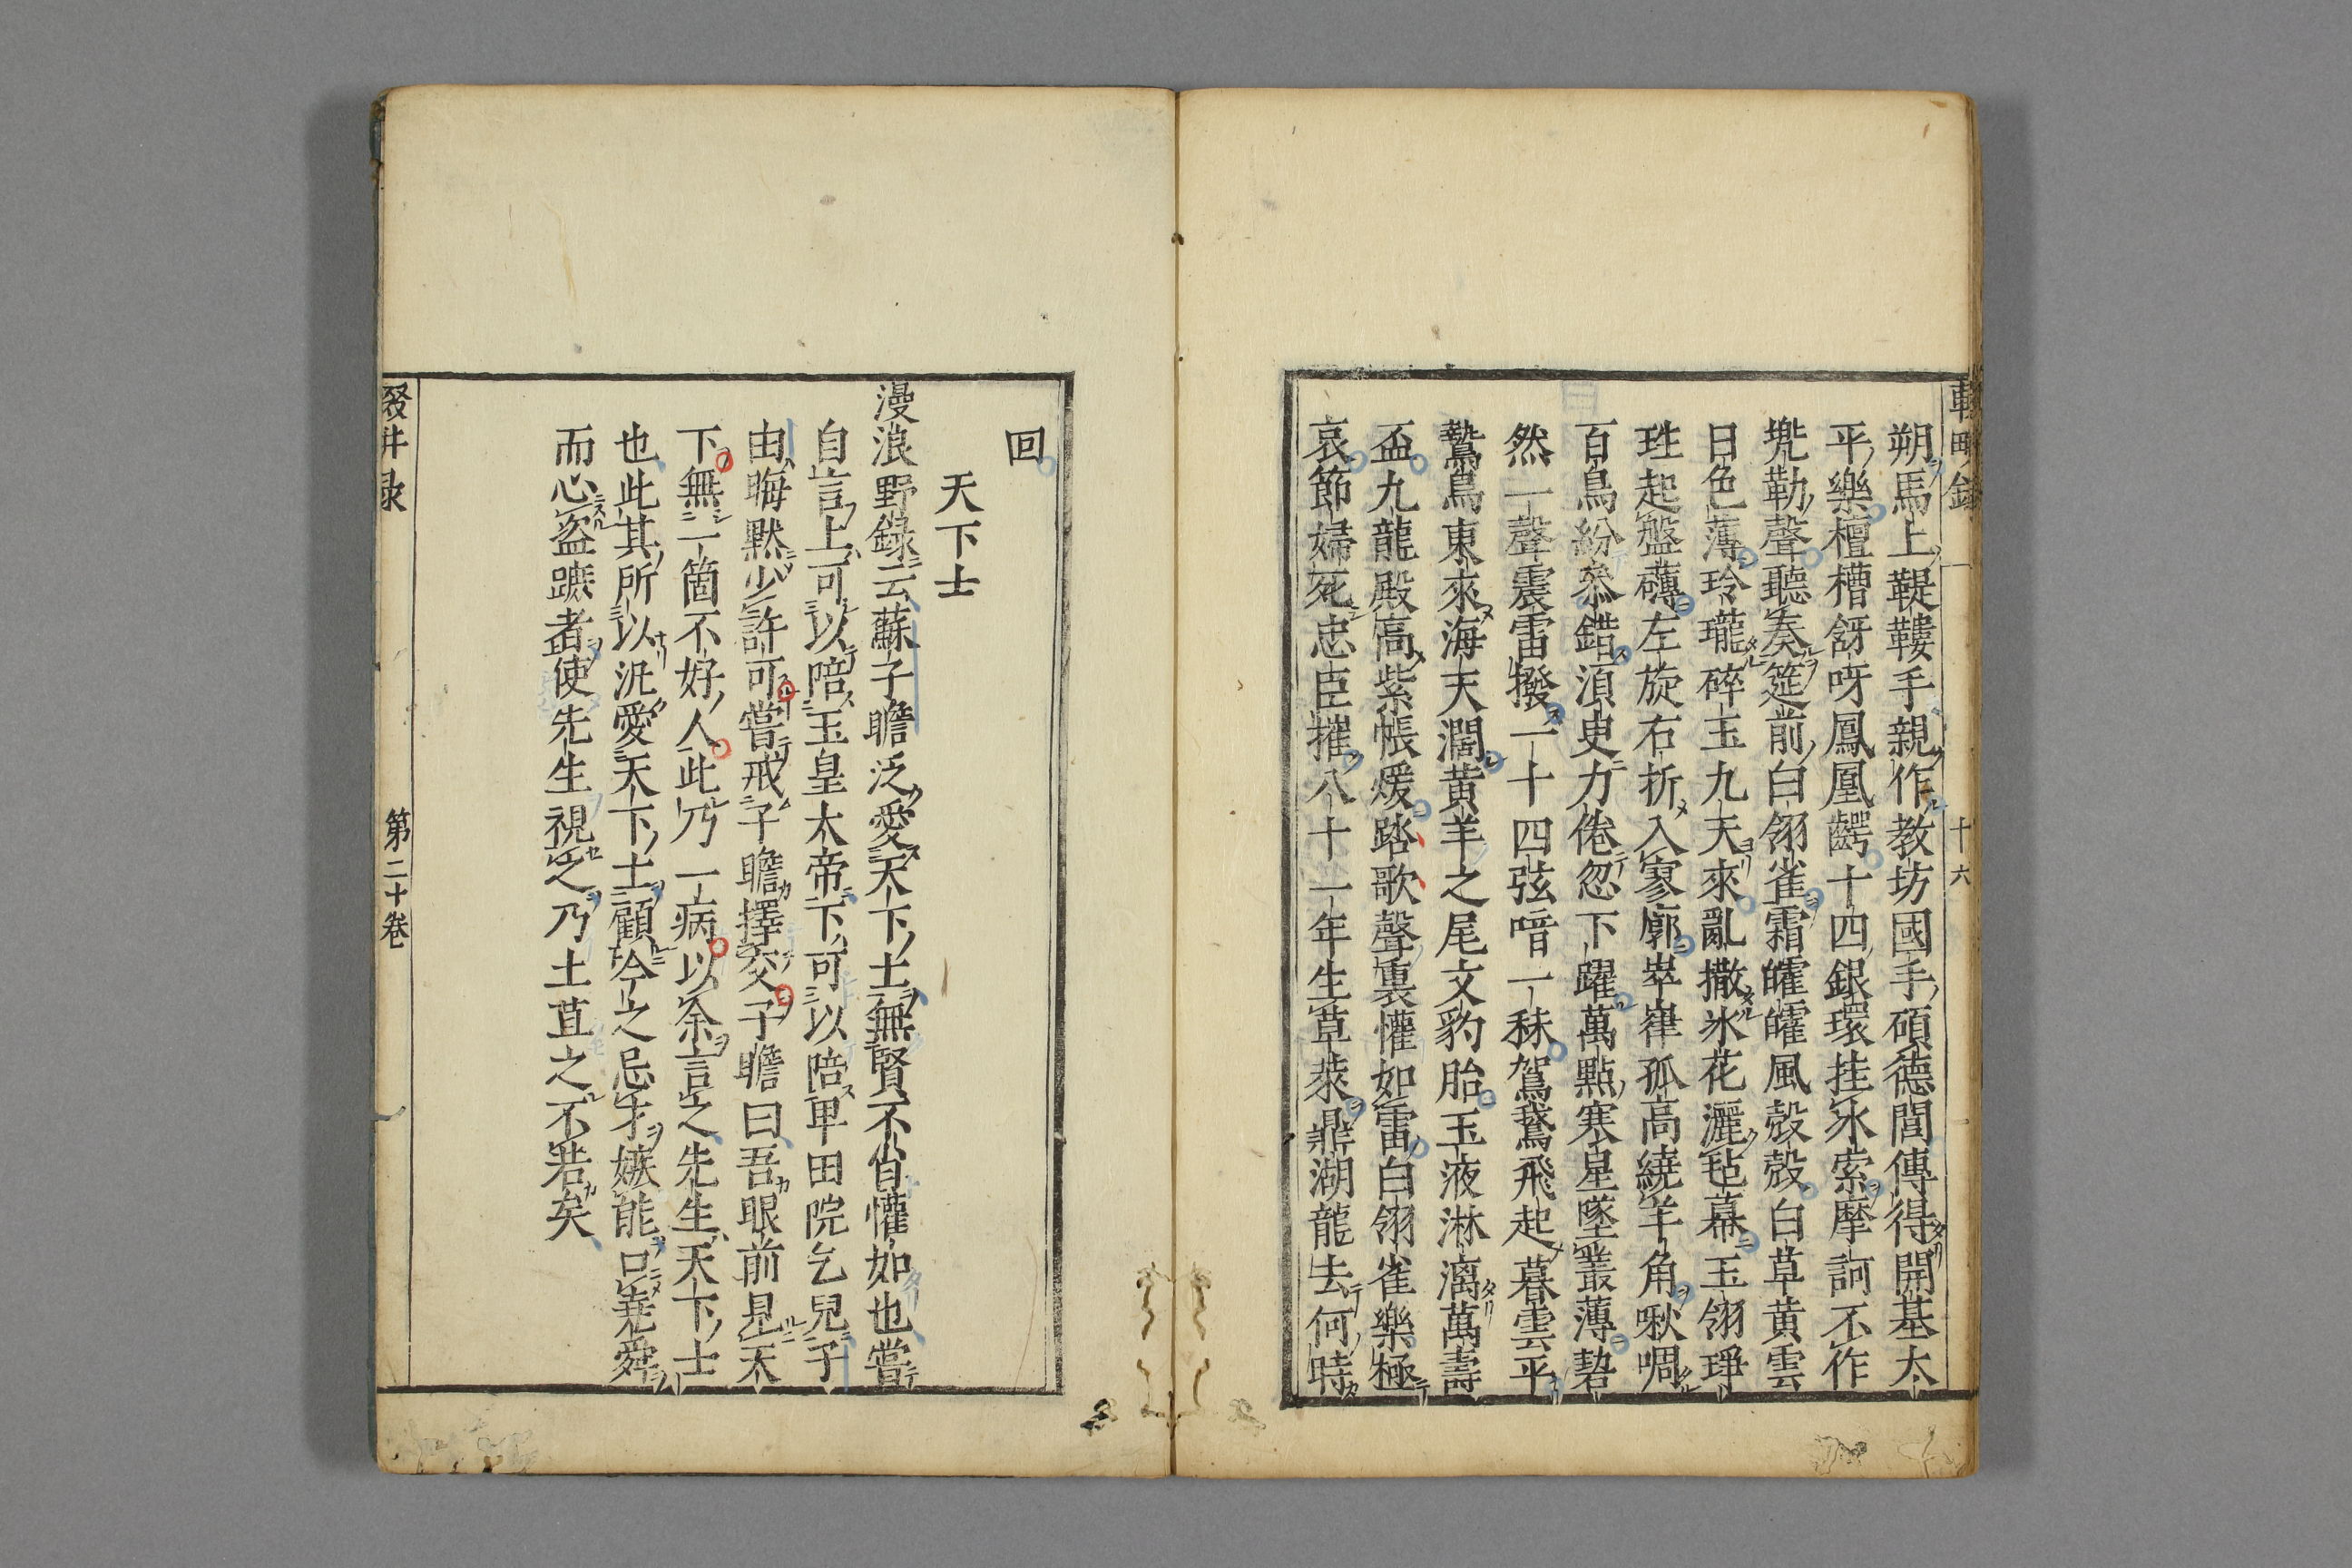 輟畊録
十六
朔馬上鞮鞻手親作教坊國手碩德閭傳得開基太
平樂檀槽谺呀鳳凰齶十四銀環挂氷索摩訶不作
兠勒聲聽奏筵前白翎雀霜皬皬風殼殼白草黄雲
日色薄玲瓏碎玉九天來亂撒氷花灑毡幕玉翎琤
珄起盤礴左旋右折入寥廓崒嵂孤高繞羊角啾啁
百鳥紛叅錯湏臾力倦忽下躍萬點寒星墜叢薄㓦
然一聲震雷撥一十四弦喑一秣鴐鵞飛起暮雲平
鷙鳥東來海天濶黄羊之尾文豹胎玉液淋漓萬壽
盃九龍殿髙紫帳煖踏歌聲裏懽如雷白翎雀樂極
哀節婦死忠臣摧八十一年生草萊鼎湖龍去何時
回
天下士
漫浪野録云蘇子瞻泛愛天下士無賢不肖懽如也嘗
自言上可以陪玉皇太帝下可以陪卑田院乞兒子
由晦黙少許可嘗戒子瞻擇交子瞻曰吾眼前見天
下無一箇不好人此乃一病以余言之先生天下士
也此其所以汎愛天下士顧今之忌才嫉能口堯舜
而心盜蹠者使先生視之乃土苴之不若矣
輟畊录
第二十卷